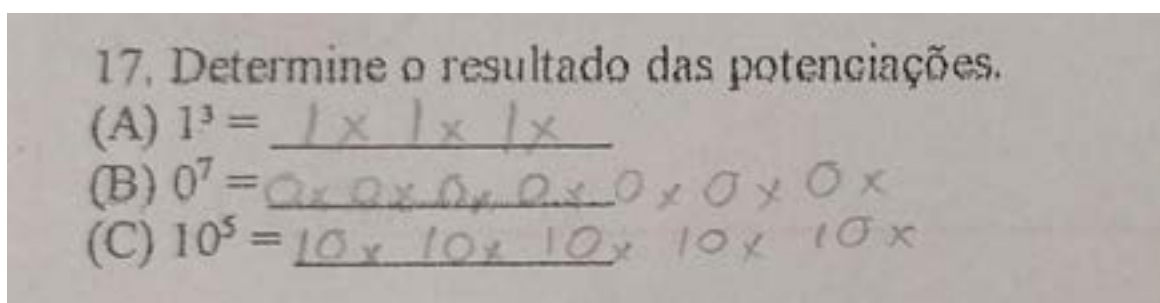 17. Determine o resultado das potenciações.
(A) 1³ = 1 x 1 x 1 x
(B) 0⁷ = 0 x 0 x 0 x 0 x 0 x 0 x 0 x
(C) 10⁵ = 10 x 10 x 10 x 10 x 10 x